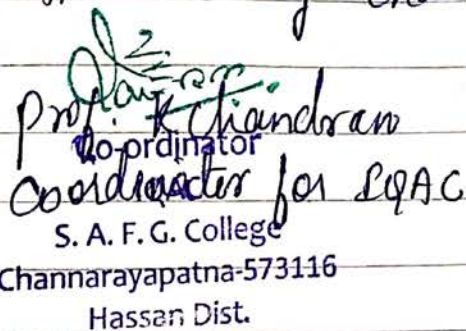 Prof. K Chiandran
Co-ordinator
Coordinator for IQAC
S. A. F. G. College
Channarayapatna-573116
Hassan Dist.